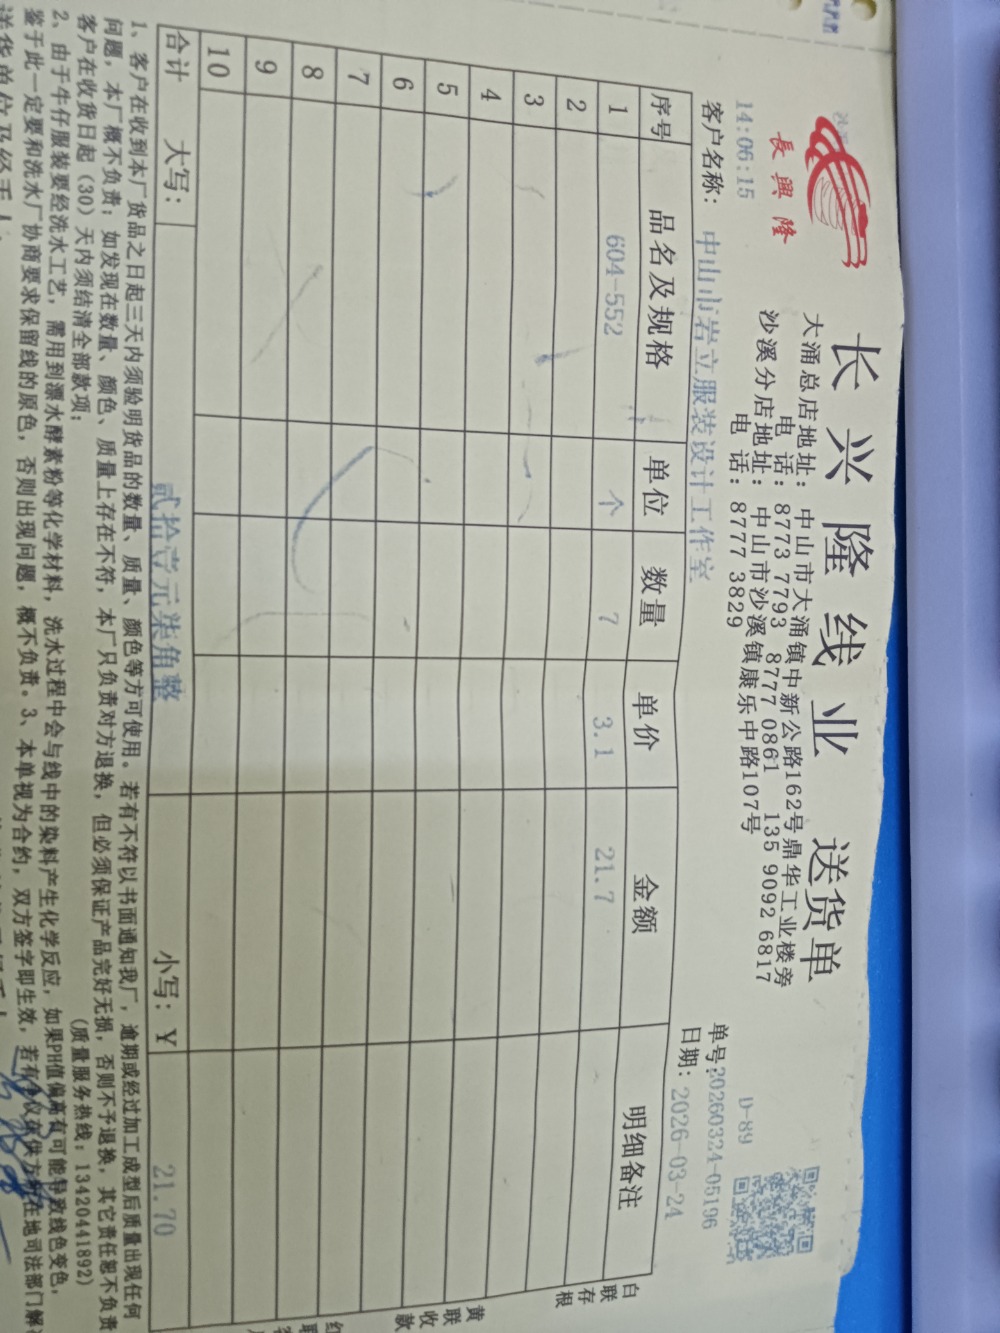 長興隆
长兴隆线业 送货单
大涌总店地址：中山市大涌镇中新公路162号鼎华工业楼旁
电 话：8773 7793 8777 0861 135 9092 6817
沙溪分店地址：中山市沙溪镇康乐中路107号
电 话：8777 3829
14:06:15
D-89
单号:20260324-05196
客户名称：中山市岩立服装设计工作室
日期：2026-03-24
序号 品名及规格 单位 数量 单价 金额 明细备注
1 604-552 个 7 3.1 21.7
2
3
4
5
6
7
8
9
10
合计 大写： 贰拾壹元柒角整 小写：Y 21.70
白联存根
黄联收款
1、客户在收到本厂货品之日起三天内须验明货品的数量、质量、颜色等方可使用。若有不符以书面通知我厂，逾期或经过加工成型后质量出现任何
问题，本厂概不负责；如发现在数量、颜色、质量上存在不符，本厂只负责对方退换，但必须保证产品完好无损，否则不予退换，其它责任恕不负责
客户在收货日起（30）天内须结清全部款项； （质量服务热线：13420441892）
2、由于牛仔服装要经洗水工艺，需用到漂水酵素粉等化学材料，洗水过程中会与线中的染料产生化学反应，如果PH值偏高有可能导致线色变色，
鉴于此一定要和洗水厂协商要求保留线的原色，否则出现问题，概不负责。3、本单视为合约，双方签字即生效，若有
送货单位及经手人：